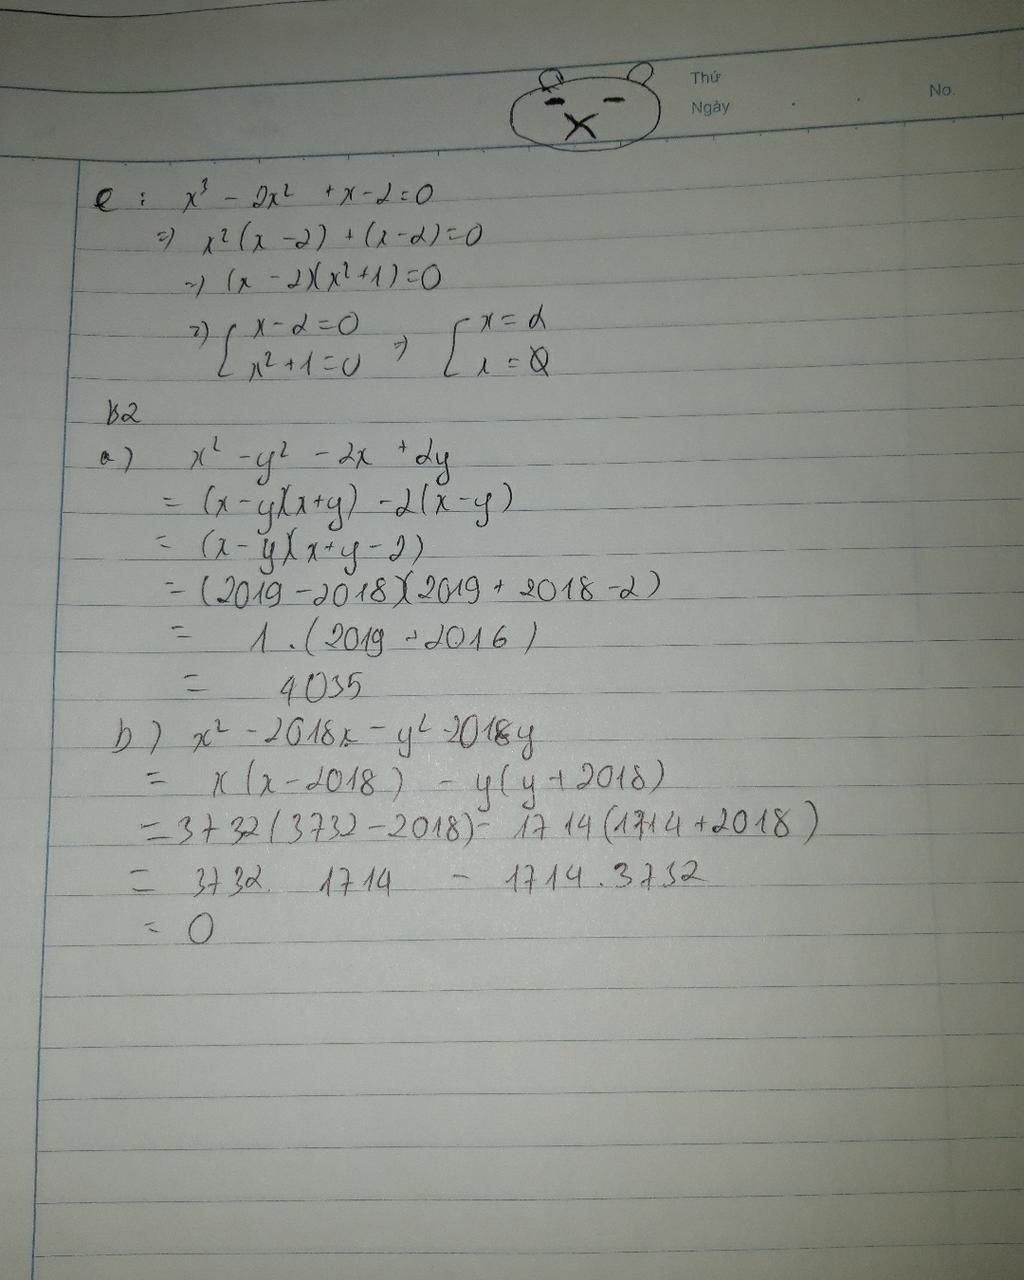 Thứ
Ngày
No.
e : x³ - 2x² + x - 2 = 0
=) x²(x - 2) + (x - 2) = 0
=) (x - 2)(x² + 1) = 0
=) [ x - 2 = 0 =) [ x = 2
x² + 1 = 0 x = Ø
B2
a) x² - y² - 2x + 2y
= (x - y)(x + y) - 2(x - y)
= (x - y)(x + y - 2)
= (2019 - 2018)(2019 + 2018 - 2)
= 1 . (2019 + 2016)
= 4035
b) x² - 2018x - y² - 2018y
= x(x - 2018) - y(y + 2018)
= 3732(3732 - 2018) - 1714(1714 + 2018)
= 3732 . 1714 - 1714 . 3732
= 0